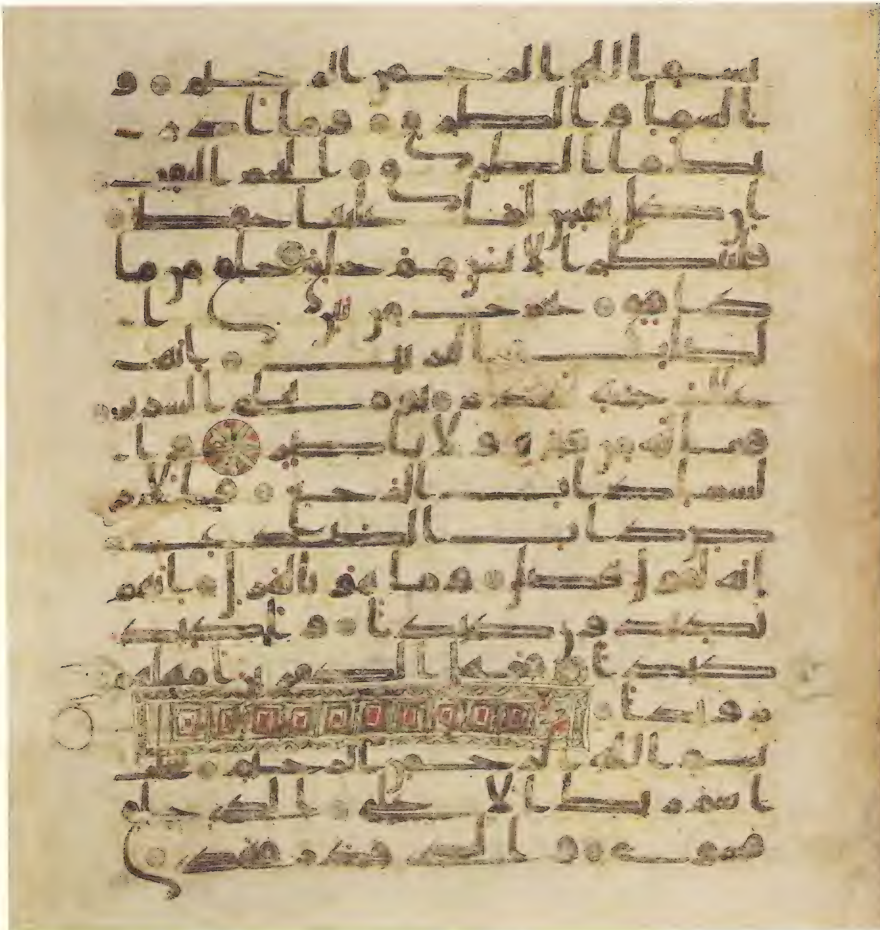 بسم الله الرحمن الرحيم و
السما والطرق وما ادر
يك ما الطرق النجم الثقب
ان كل نفس لما عليها حفظ
فلينظر الانسن مم خلق خلق من ما
دافق يخرج من بين ا
لصلب والترايب انه
على رجعه لقدر يوم تبلى السرير
فما له من قوة ولا ناصر وا
لسما ذات الرجع والار
ض ذات الصدع
انه لقول فصل وما هو بالهزل انهم
يكيدون كيدا واكيد
كيدا فمهل الكفرين امهلهم
رويدا
بسم الله الرحمن الرحيم سبح
اسم ربك الاعلى الذي خلق
فسوى والذي قدر فهدى